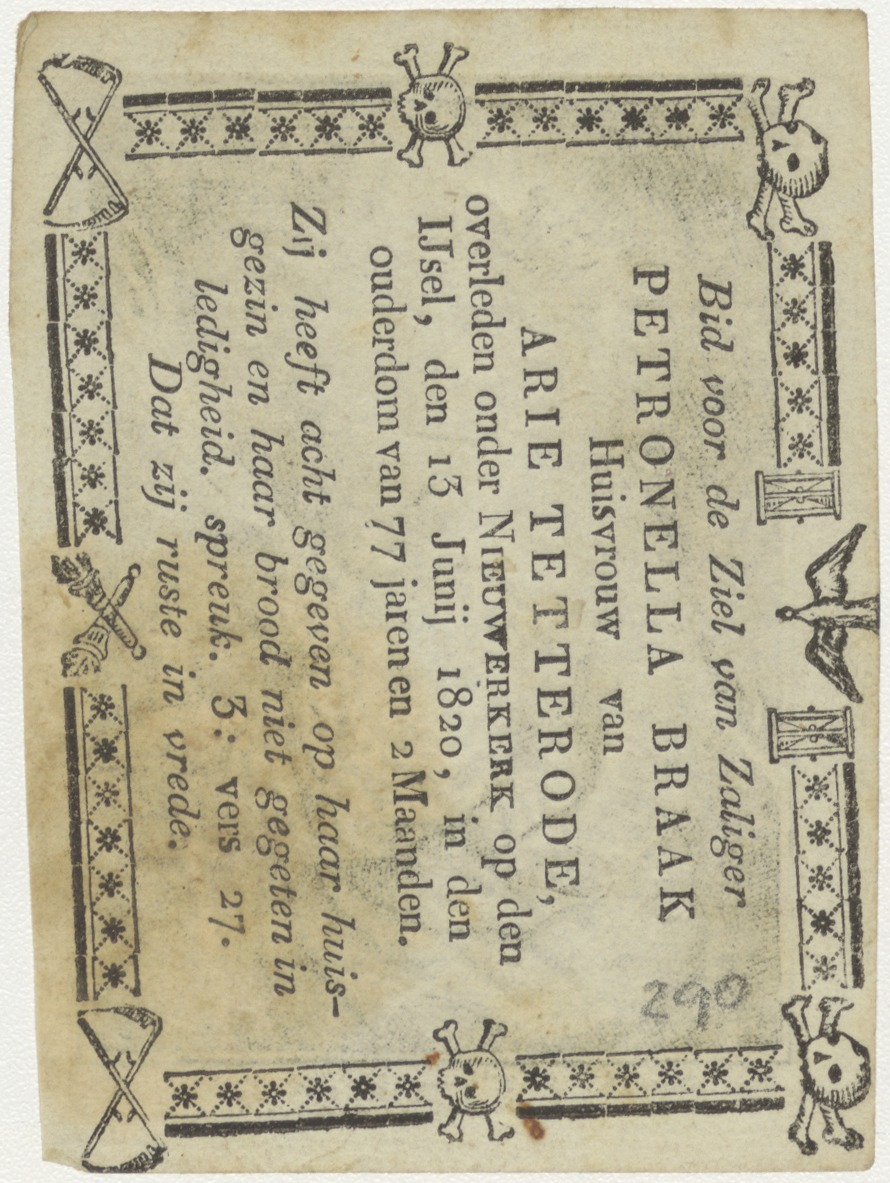 Bid voor de Ziel van Zaliger
PETRONELLA BRAAK
Huisvrouw van
ARIE TETTERODE,
overleden onder NIEUWERKERK op den
IJsel, den 13 Junij 1820, in den
ouderdom van 77 jaren en 2 Maanden.
Zij heeft acht gegeven op haar huis-
gezin en haar brood niet gegeten in
ledigheid. spreuk. 3: vers 27.
Dat zij ruste in vrede.
290